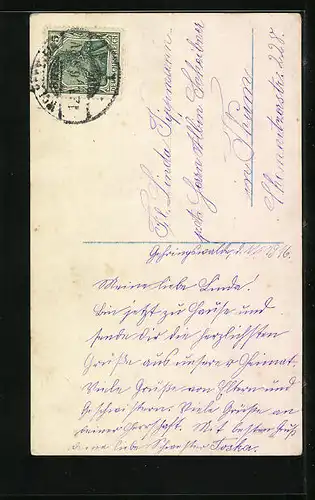 Frl. Linda
in Thum
Chemnitzerstr. 227.
Gehringswalde, d. 1916.
Meine liebe Linda!
Bin jetzt zu Hause und
sende Dir die herzlichsten
Grüße aus unserer Heimat.
Viele Grüße von Eltern und
Geschwistern. Viele Grüße an
deiner Herrschaft. Mit besten Gruß
deine liebe Schwester Toska.